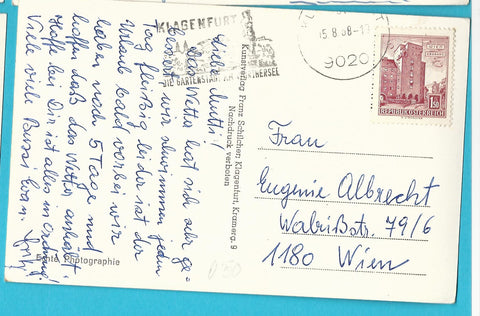 KLAGENFURT
DIE GARTENSTADT AM
15.8.68-1
9020
REPUBLIK ÖSTERREICH
1.50
Kunstverlag Franz Schilcher, Klagenfurt, Kramerg. 9
Nachdruck verboten
Echte Photographie
Liebe Mutti!
Das Wetter hat sich sehr ge-
bessert, wir schwimmen jeden
Tag fleißig. Leider ist der
Urlaub bald vorbei wir
haben noch 5 Tage und
hoffen daß das Wetter anhält.
Hoffe bei Dir ist alles in Ordnung!
Viele Bussi
Frau
Eugenie Albrecht
79/6
1180 Wien